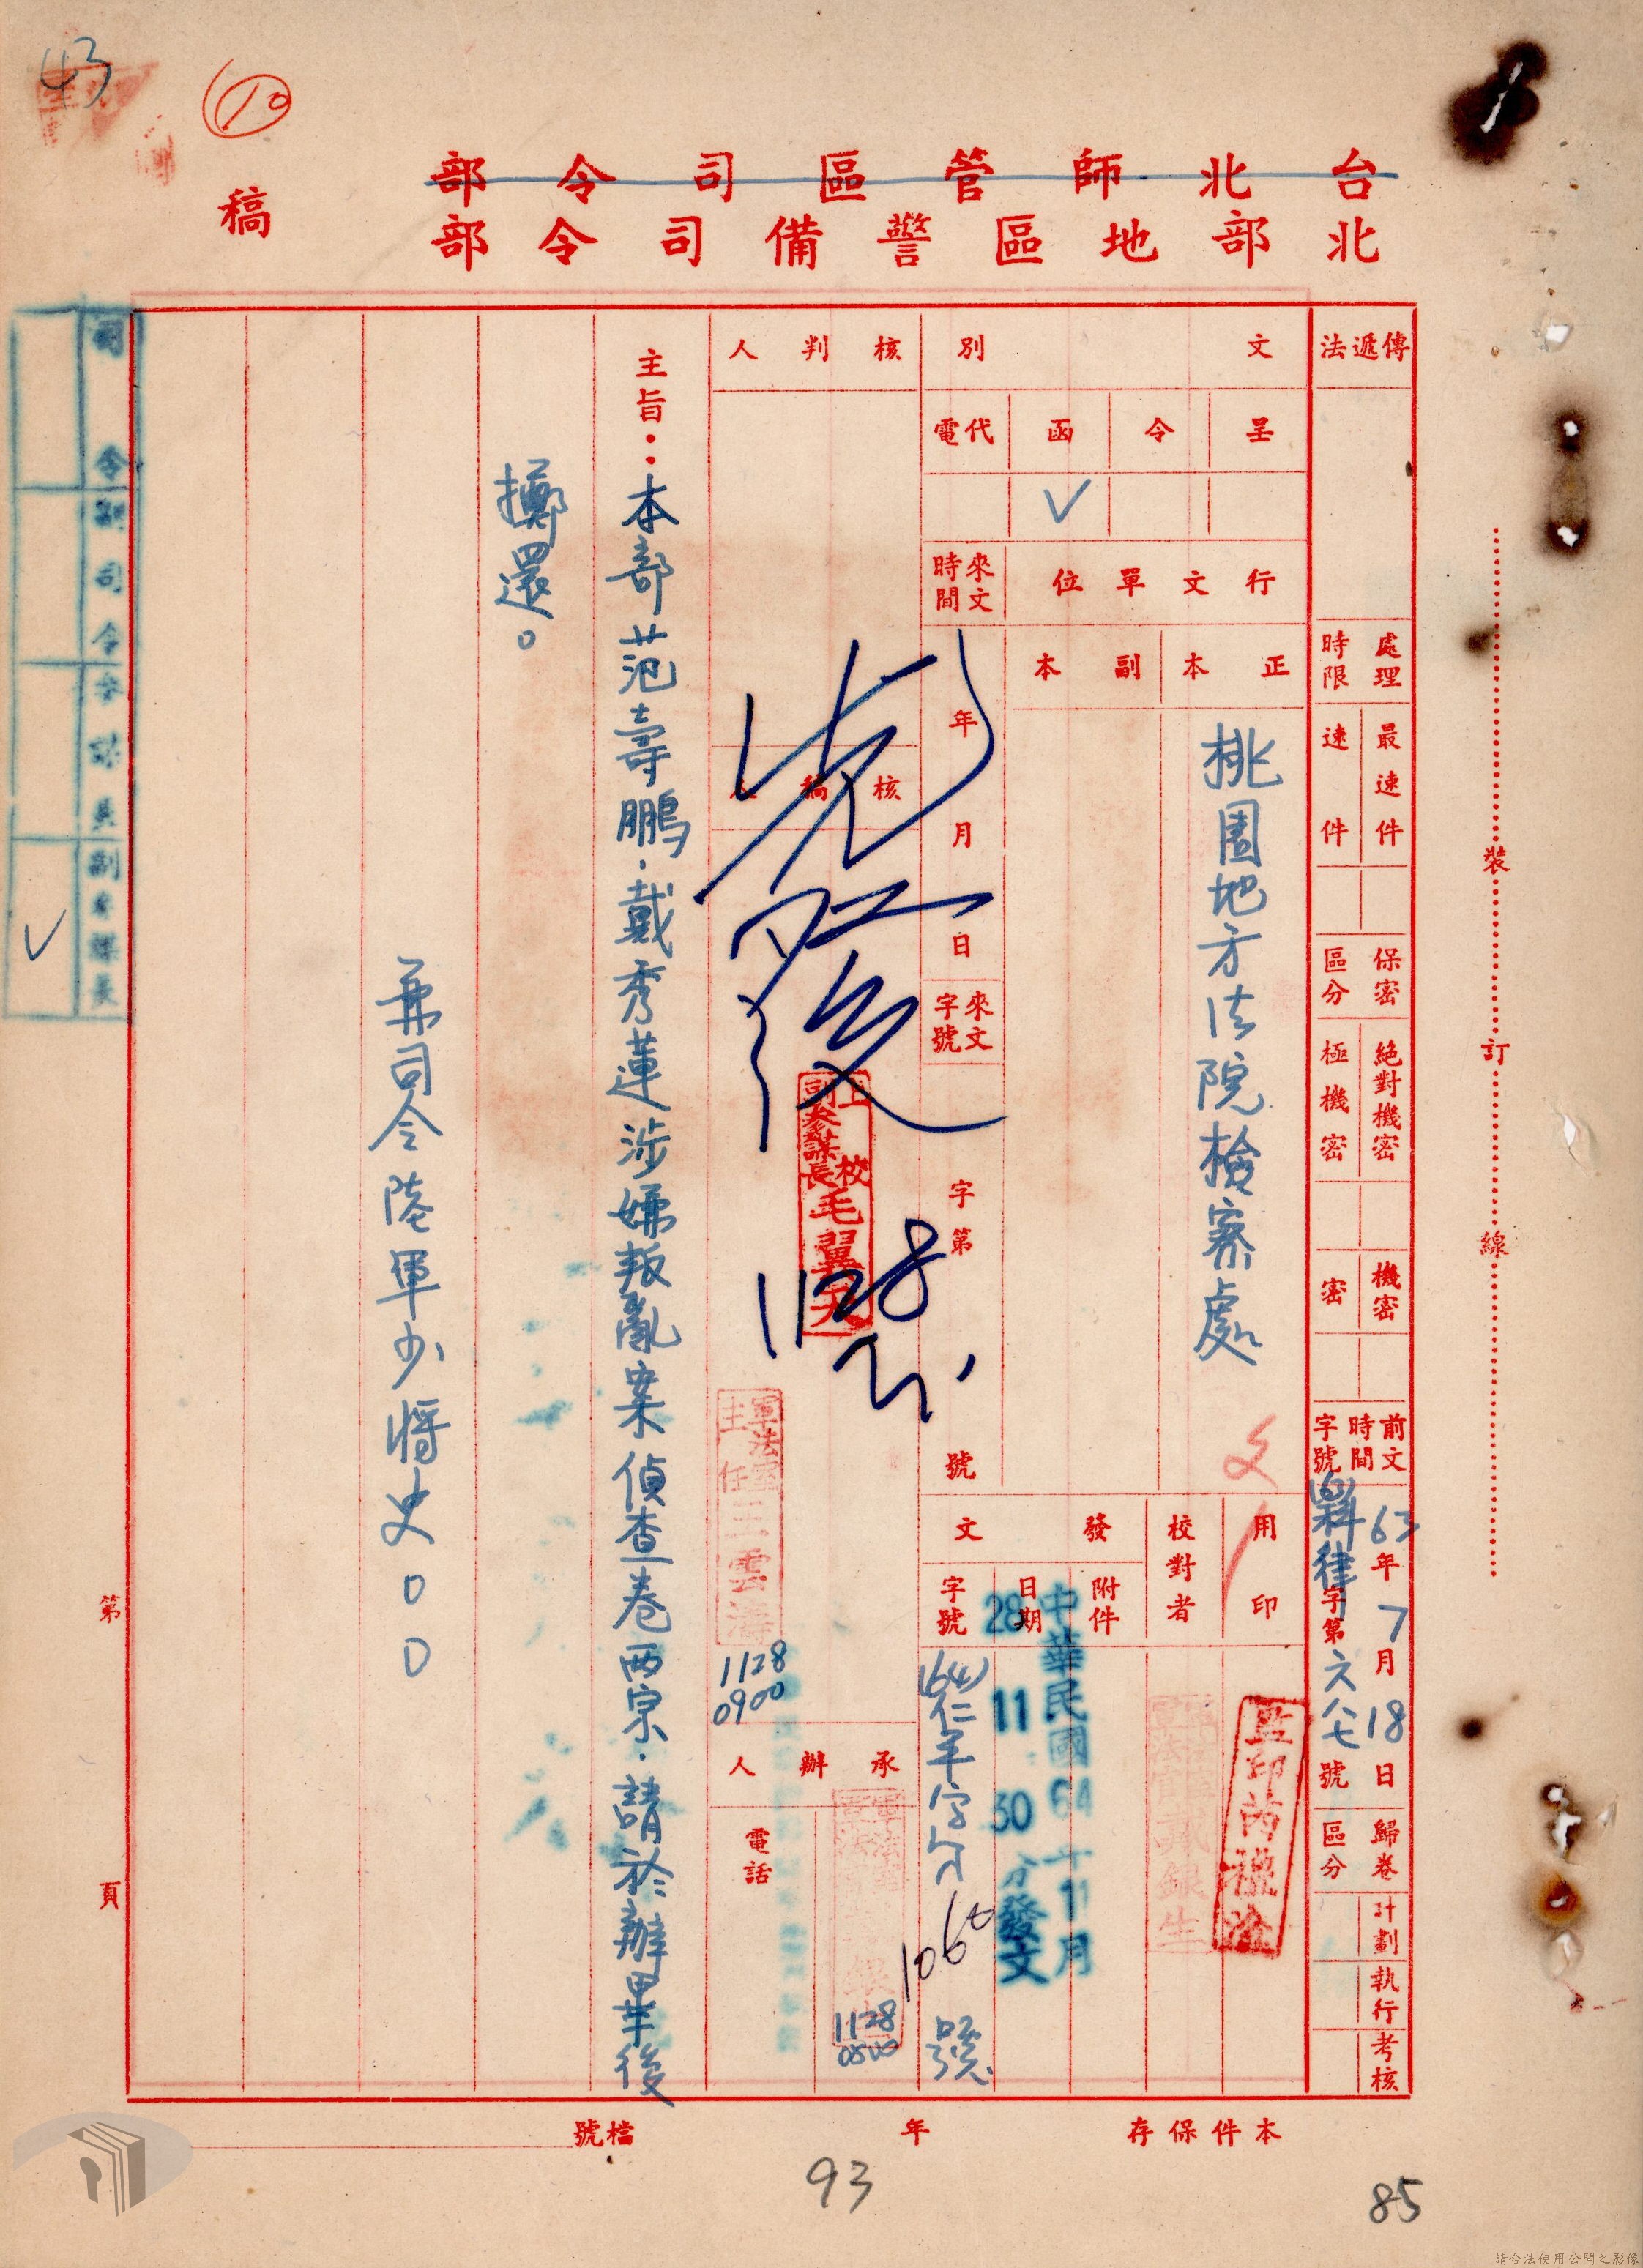 43
10
台北師管區司令部
北部地區警備司令部
稿
傳遞法
處理時限
最速件
速件
保密區分
絕對機密
極機密
機密
密
前文時間字號
63年7月18日
字第六八七號
歸卷區分
計劃
執行
考核
文別
呈
令
函
代電
✓
行文單位
正本
副本
桃園地方法院檢察處
來文時間
年月日
來文字號
字第號
用印
校對者
發文
附件
日期
字號
監印
中華民國64年11月
28 11 30 分發文
(64)
字
1060
號
核判人
核稿
上校副參謀長毛翼天
1128
軍法室主任王雲濤
1128
0900
承辦人
電話
1128
主旨：本部范壽鵬．戴秀蓮涉嫌叛亂案偵查卷兩宗．請於辦畢後
擲還。
兼司令陸軍少將史○○
司令
副司令
參謀長
副參謀長
✓
裝
訂
線
第
頁
本件保存
年
檔號
93
85
請合法使用公開之影像